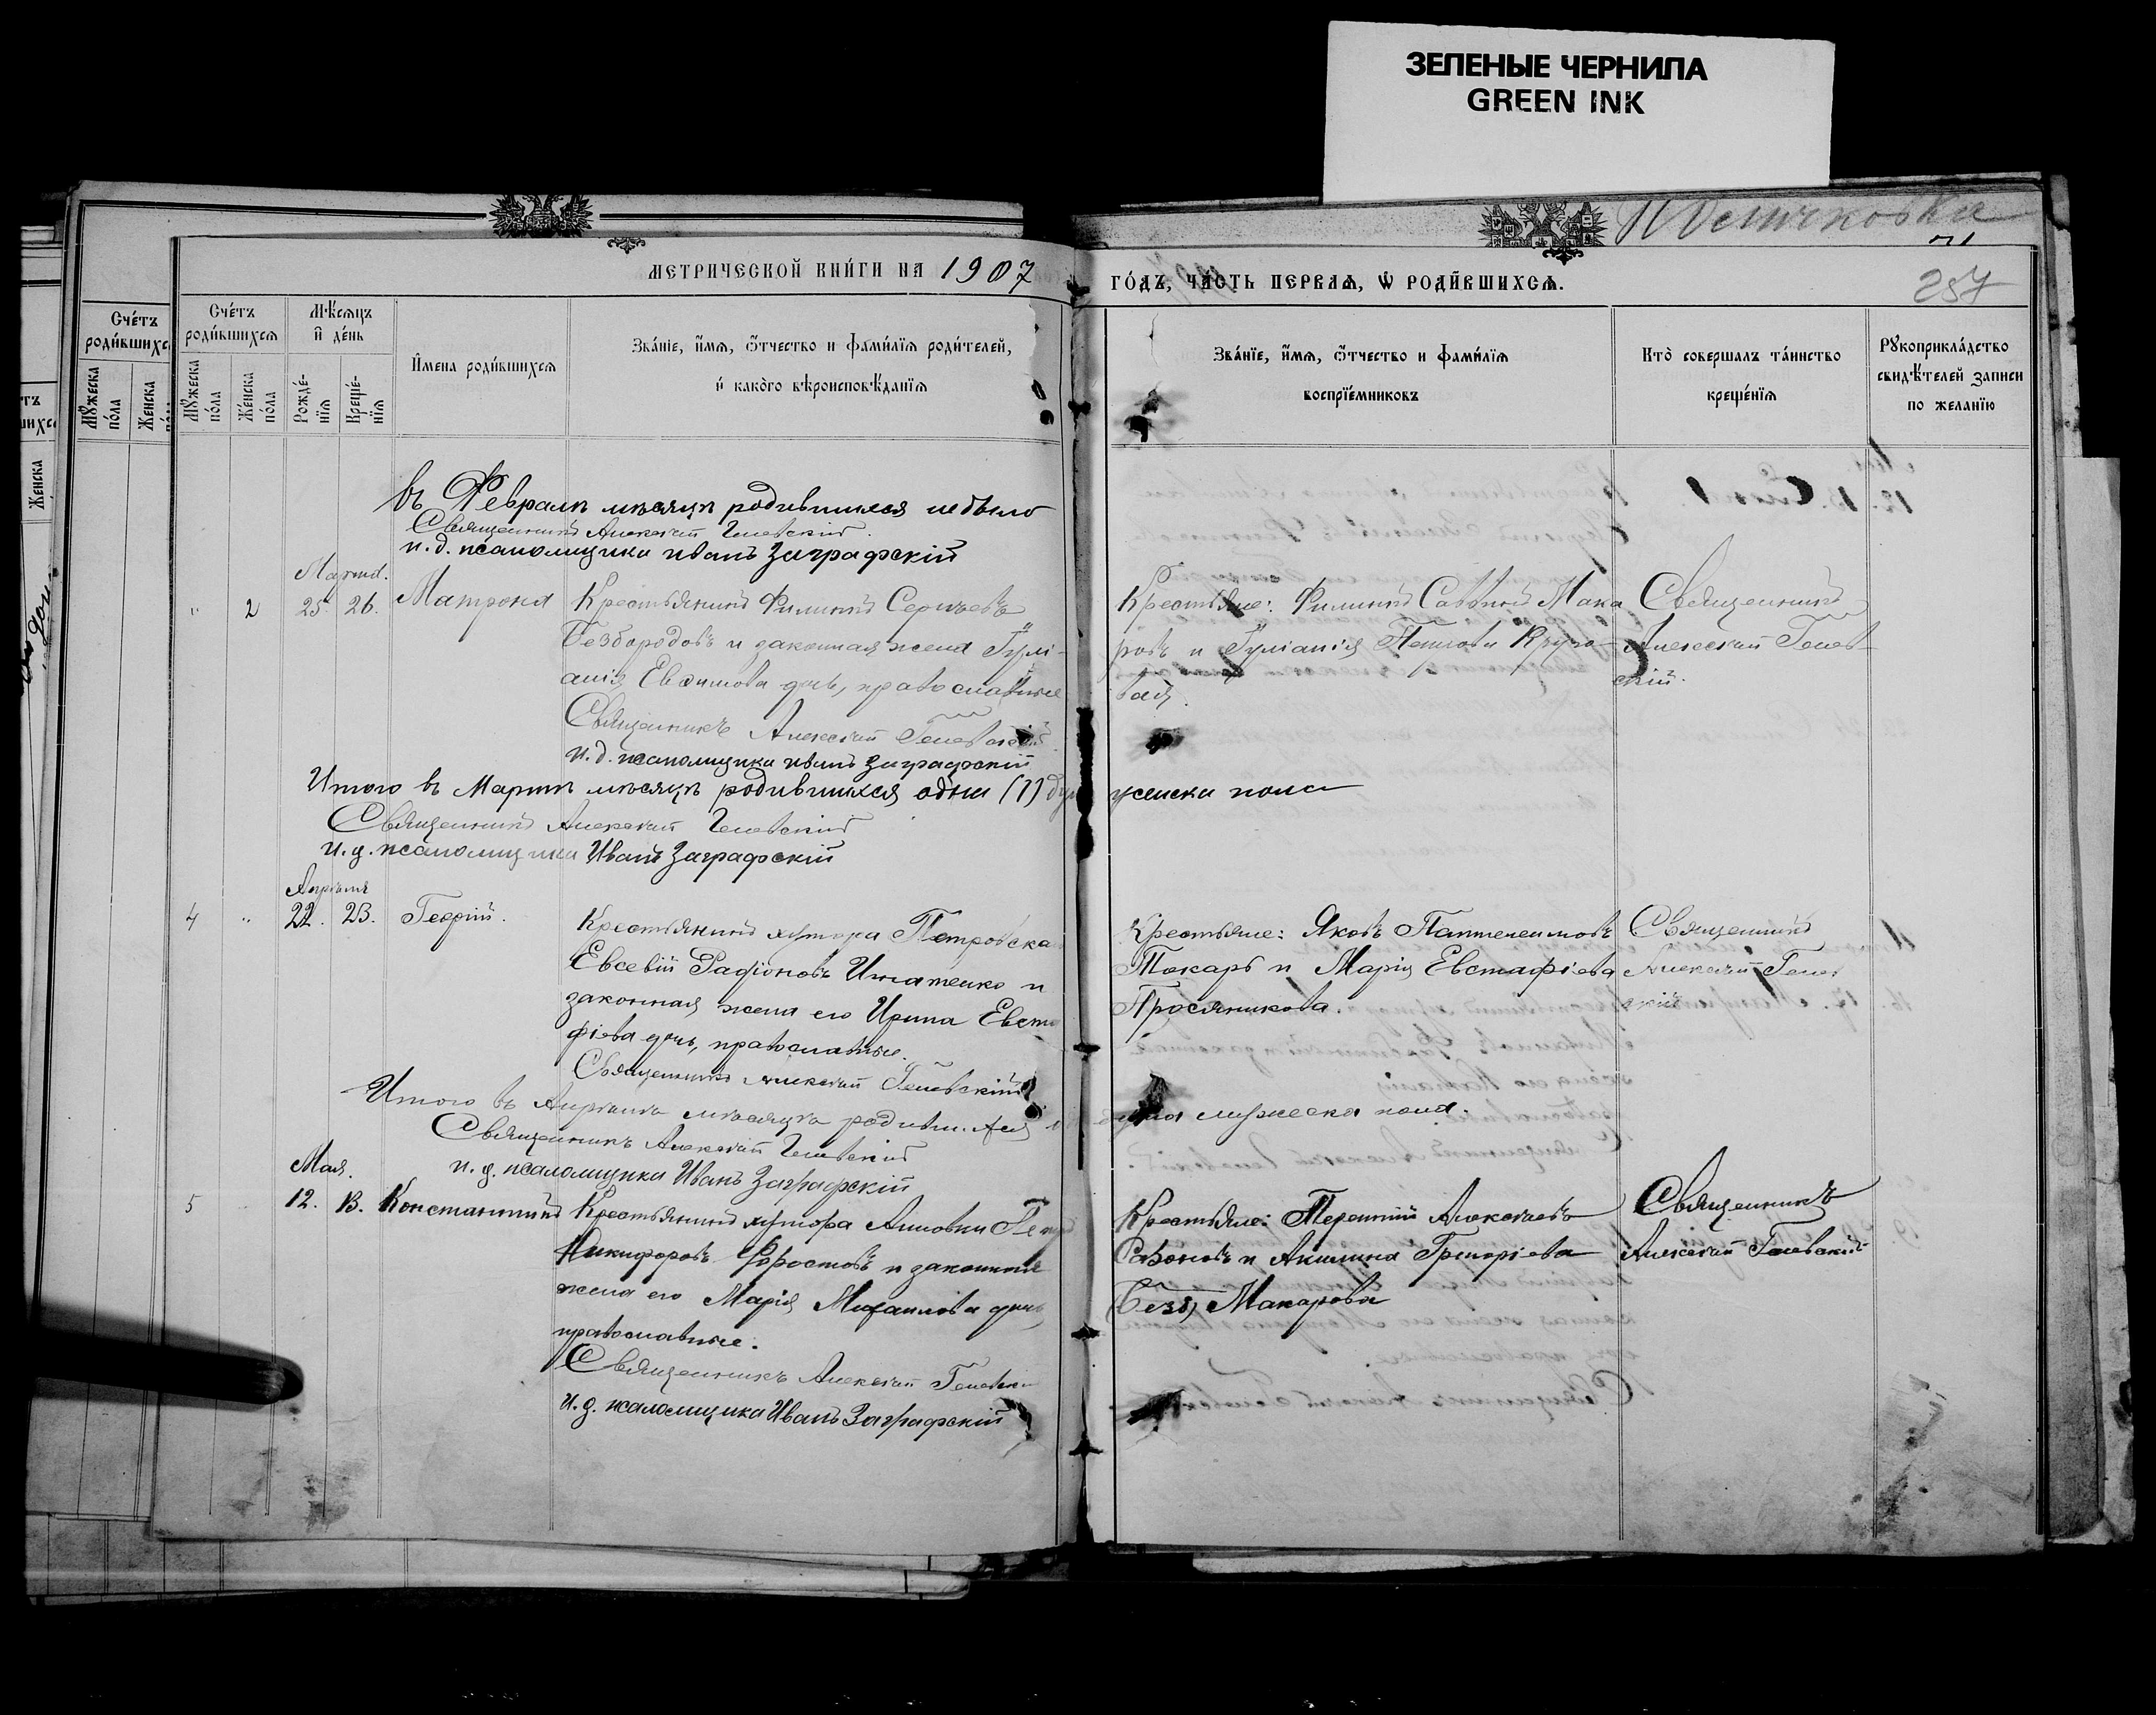 ЗЕЛЕНЫЕ ЧЕРНИЛА
GREEN INK
257
МЕТРИЧЕСКОЙ КНИ́ГИ НА 1907
ГО́ДЪ, ЧАСТЬ ПЕРВАѦ, Ѡ РОДИ́ВШИХСѦ.
Сче́тъ роди́вшихсѧ
Мѣ́сяцъ и҆ де́нь
Му́жеска по́ла
Же́нска по́ла
Рожде́нїѧ
Креще́нїѧ
И҆мена роди́вшихсѧ
Зва́нїе, и҆́мѧ, ѻ҆́тчество и фами́лїѧ роди́телей,
и҆ како́го вѣроисповѣ́данїѧ
Зва́нїе, и҆́мѧ, ѻ҆́тчество и фами́лїѧ
воспрїе́мниковъ
Кто̀ соверша́лъ та́инство
креще́нїѧ
Рꙋкоприкла́дство
свидѣ́телей записи
по жела́нїю
въ Февралѣ мѣсяцѣ родившихся небыло
Священникъ Алексѣй
и. д. псаломщика Иванъ Заграфскій
Марта.
" 2 25. 26. Матрона
Крестьянинъ Филиппъ Сергѣевъ
Безбородовъ и законная жена Іулі-
анія Евфимова дочь, православные
Священникъ Алексѣй
и. д. псаломщика Иванъ Заграфскій
Крестьяне: Филиппъ Саввинъ Мака
ровъ и Іуліанія
вая.
Священникъ
Алексѣй
скій.
Итого въ Мартѣ мѣсяцѣ родившихся одна (1) душа женска пола
Священникъ Алексѣй
и. д. псаломщика Иванъ Заграфскій
Апрѣля
4 " 22. 23. Георгій.
Крестьянинъ хутора Петровска
Евсевій Радіоновъ Игнатенко и
законная жена его Ирина Евста
фіева дочь, православные.
Священникъ Алексѣй
Крестьяне: Яковъ Пантелеимовъ
Токарь и Марія Евстафіева
Просяникова.
Священникъ
Алексѣй
скій
Итого въ Апрѣлѣ мѣсяцѣ родившихся
душа мужеска пола.
Священникъ Алексѣй
и. д. псаломщика Иванъ Заграфскій
Мая.
5 12. 13. Константинъ
Крестьянинъ хутора
Никифоровъ Форостовъ и законная
жена его Марія Михаилова дочь,
православные.
Священникъ Алексѣй
и. д. псаломщика Иванъ Заграфскій
Крестьяне: Терентій Алексѣевъ
Сафоновъ и Акилина Григоріева
Макарова
Священникъ
Алексѣй